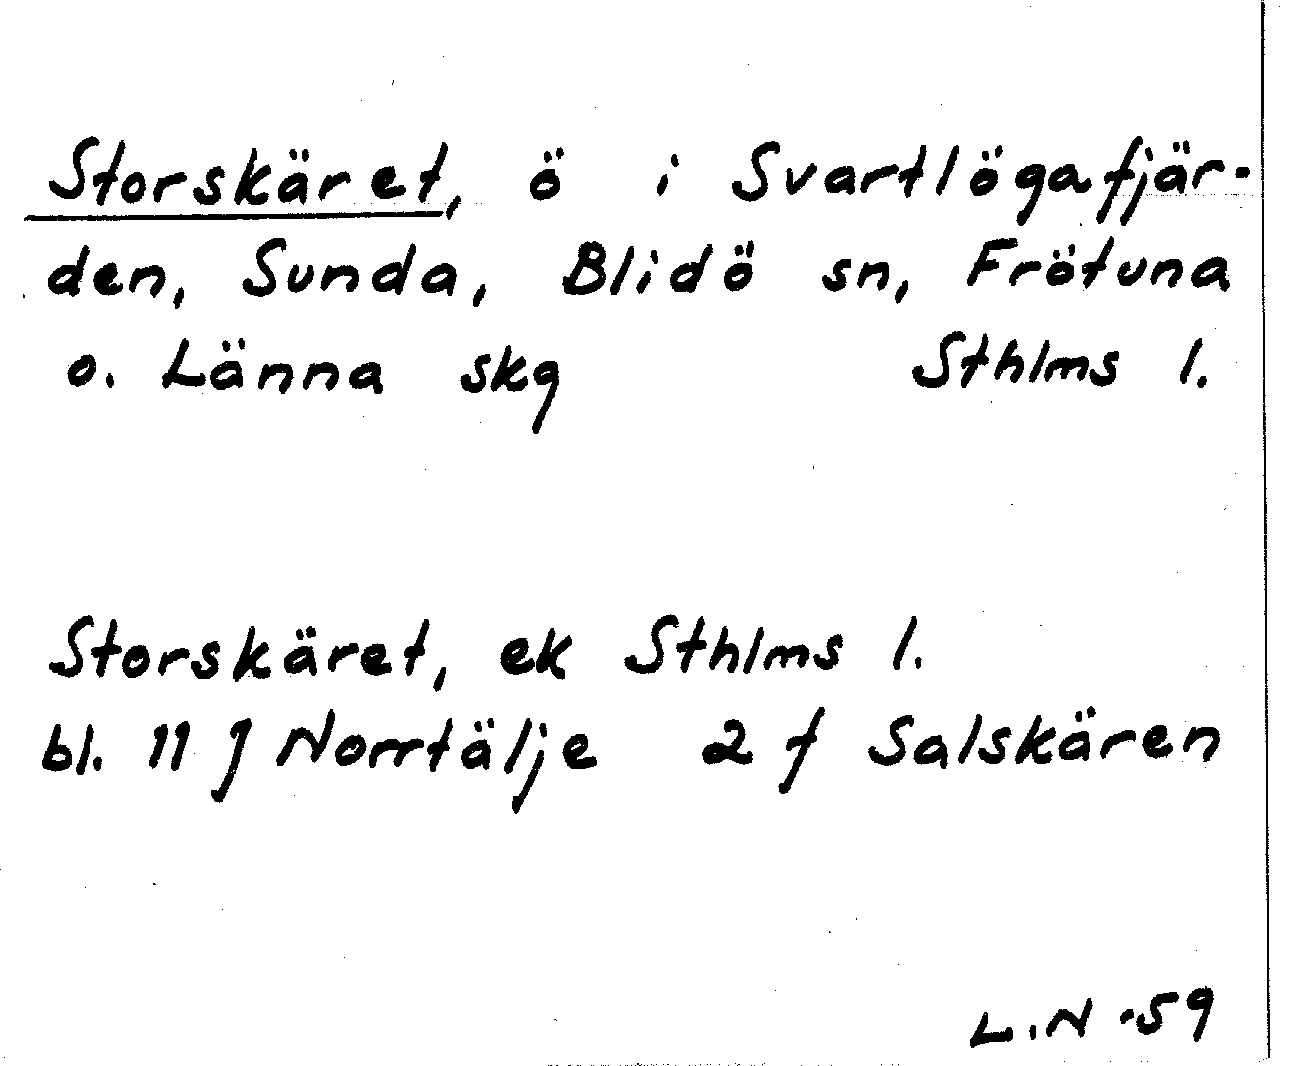 Storskäret, ö i Svartlögafjär-
den, Sunda, Blidö sn, Frötuna
o. Länna skg Sthlms l.
Storskäret, ek Sthlms l.
bl. 11 J Norrtälje 2 f Salskären
L.N -59